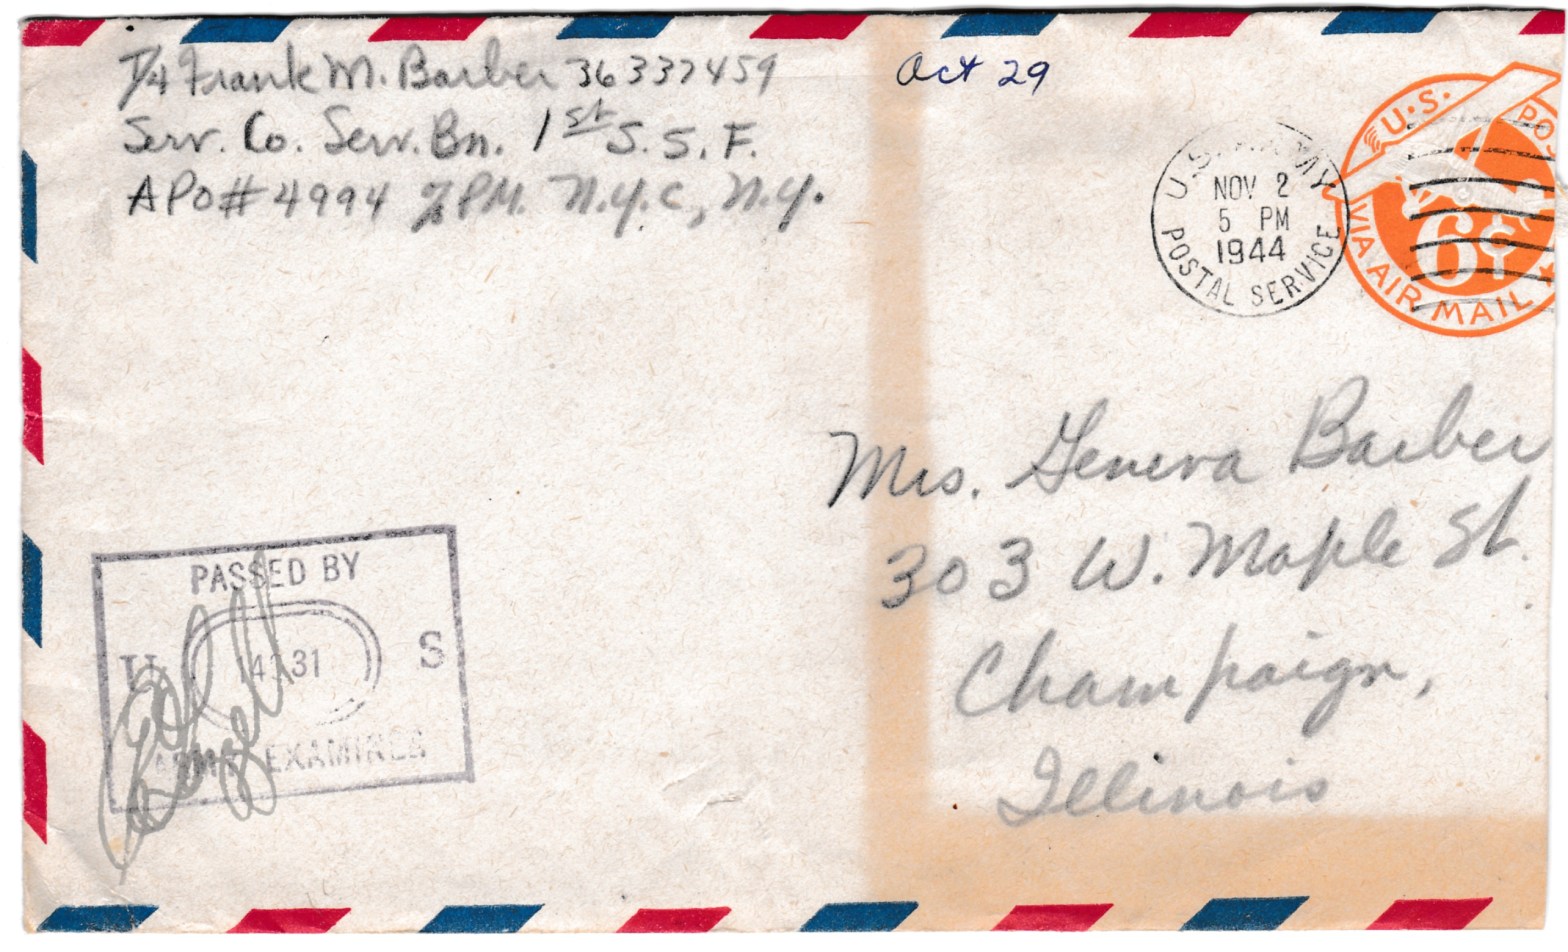 T/4 Frank M. Barber 36337459
Serv. Co. Serv. Bn. 1st S. S. F.
APO# 4994 % PM. N.Y.C, N.Y.
Oct 29
U.S. ARMY
NOV 2
5 PM
1944
POSTAL SERVICE
U.S. POS
6¢
VIA AIR MAIL
Mrs. Geneva Barber
303 W. Maple St.
Champaign,
Illinois
PASSED BY
U S
ARMY EXAMINER